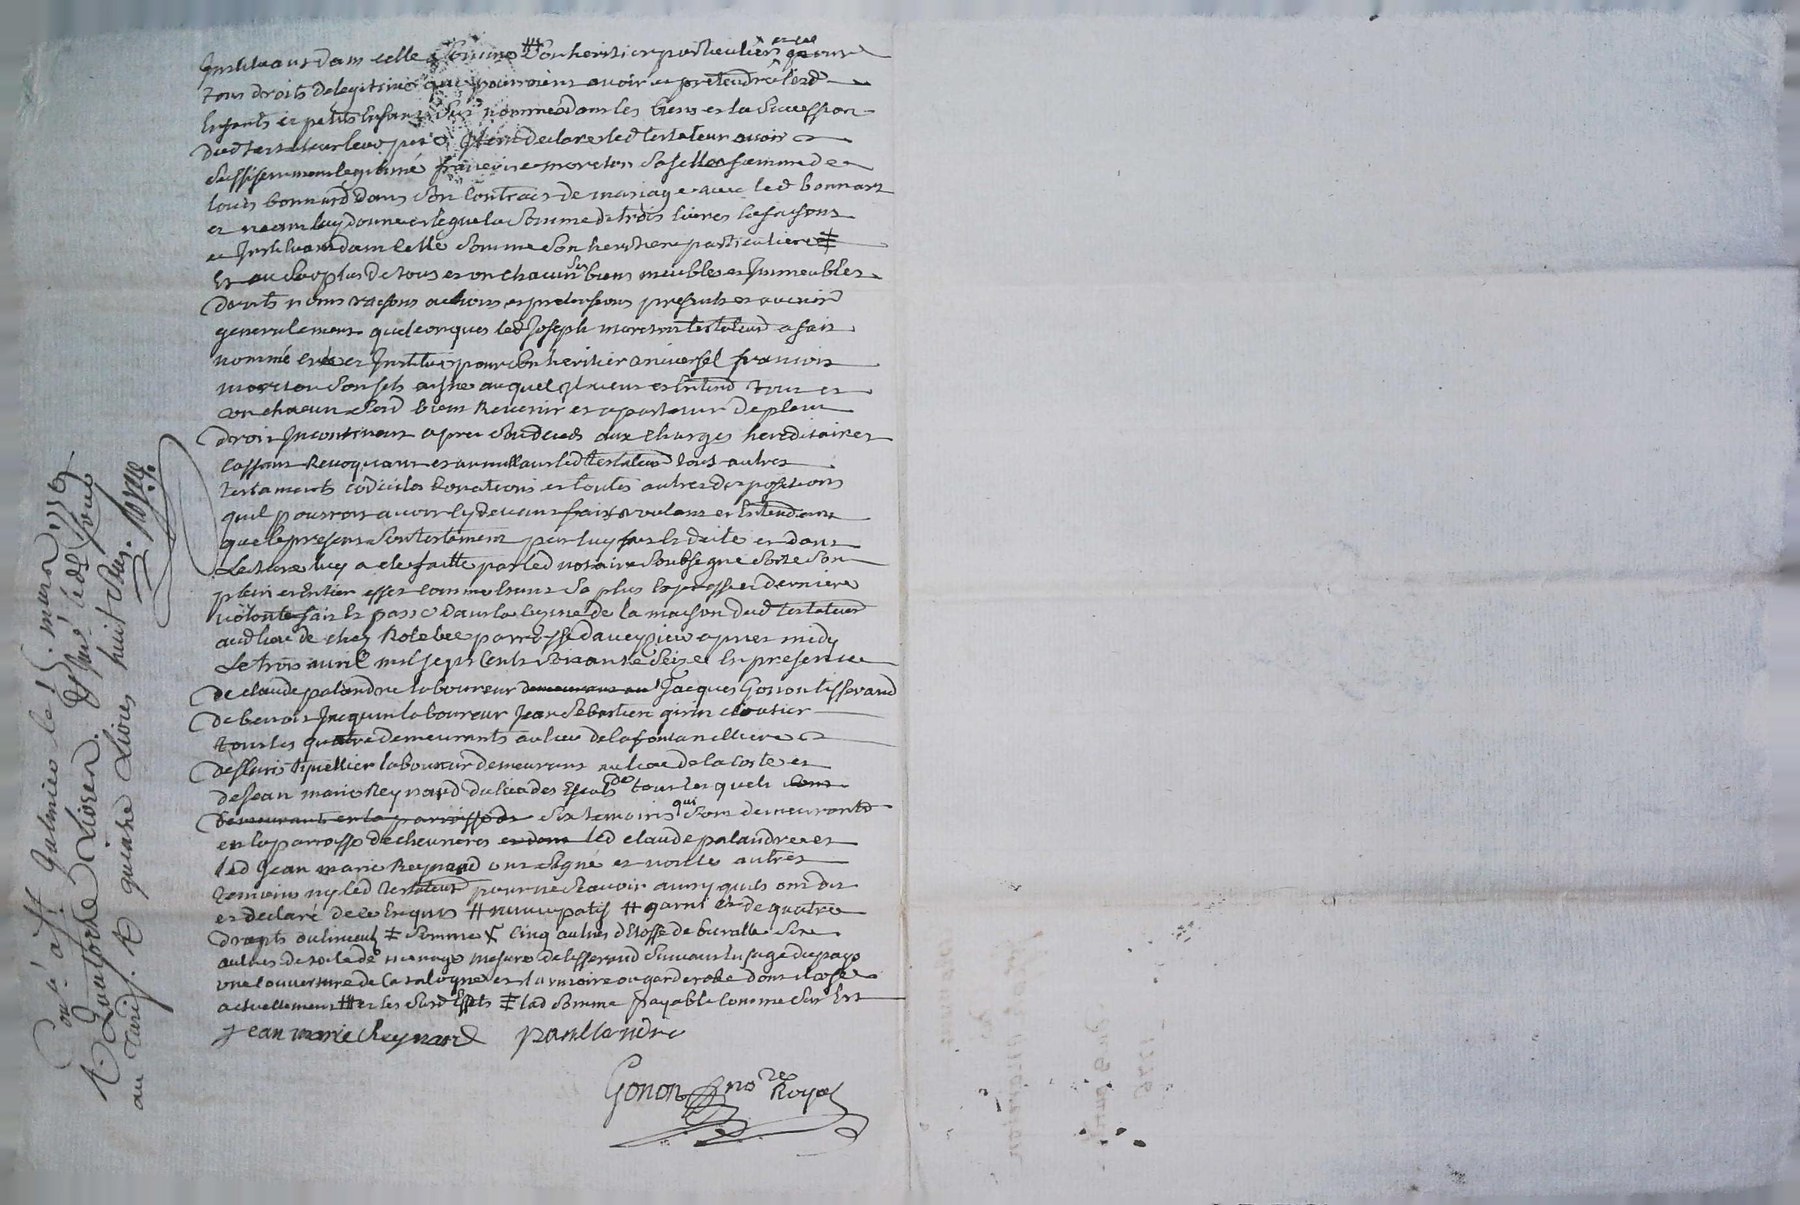 Instituant dans celle somme # son heritier particulier
tous droits de legitime que pourroient avoir et pretendre lesd
Enfants et petits Enfans Sus nommes dans les biens et la Succession
dud testateur leur pere Item declare led testateur avoir
legitimé françoise moreton sa fille femme de
louis bonnard dans son Contract de mariage avec led bonnard
et neanm luy donne et legue la Somme de trois livres la faisant
et Instituant dans celle somme son heritiere particuliere ‡
Et au Surplus de tous et un chacun ses biens meubles et Immeubles
droits noms raisons actions et pretensions presents et avenir
generalement quelconques led Joseph moreton testateur a fait
nommé créé et Institué pour son heritier universel françois
moreton son fils ayne auquel Il veut et Entend tous et
un chacun sesd biens Revenir et apartenir de plein
droit Incontinent apres son deces aux charges hereditaires
Cassant Revoquant et annullant led testateur tous autres
testaments codiciles donations et toutes autres dispositions
quil pourroit avoir cy devant fait voulant et Entendant
que le present son testament par luy dicté et dont
Lecture luy a ete faitte par led notaire Soubsigné sorte son
plein et Entier effet comme etant sa plus Expresse et derniere
volonté fait et passé dans la cuisine de la maison dud testateur
aud lieu de chez Rolebec parroisse daveyzieu apres midy
Le trois avril mil sept Cents Soixante Seize En presence
de claude palandre laboureur demeurant au Jacques Gonon tisserand
de benoit Jacquin laboureur Jean Sebastien girin cloutier
tous les quatre demeurants au lieu de la fontanelliere et
de fleuris laboureur demeurant au lieu de la Coste et
de Jean marie Reynard du lieu des tous lesquels
demeurants en la parroisse de six temoins qui sont demeurants
en la parroisse de chevrieres led claude palandre et
led Jean marie Reynard ont signé et non les autres
temoins ny led testateur pour ne scavoir ainsy quils ont dit
et declaré de ce Enquis # nuncupatif # garni de quatre
draps ou linceuls ‡ somme cinq aulnes d'Etoffe de buratte
aulnes de toile de menage mesure de tisserand Suivant lusage du pays
une couverture de Catalogne et une armoire ou garderobe dont
actuellement # et les susd Effets ‡ lad somme payable Comme Sus Est
Jean marie Reynard pallandre
Gonon nore
Royal
Conté a St Galmier le 5. mars 1779
R. quatorze Livres. led
au Tarif. R quatre Livres huit sous.